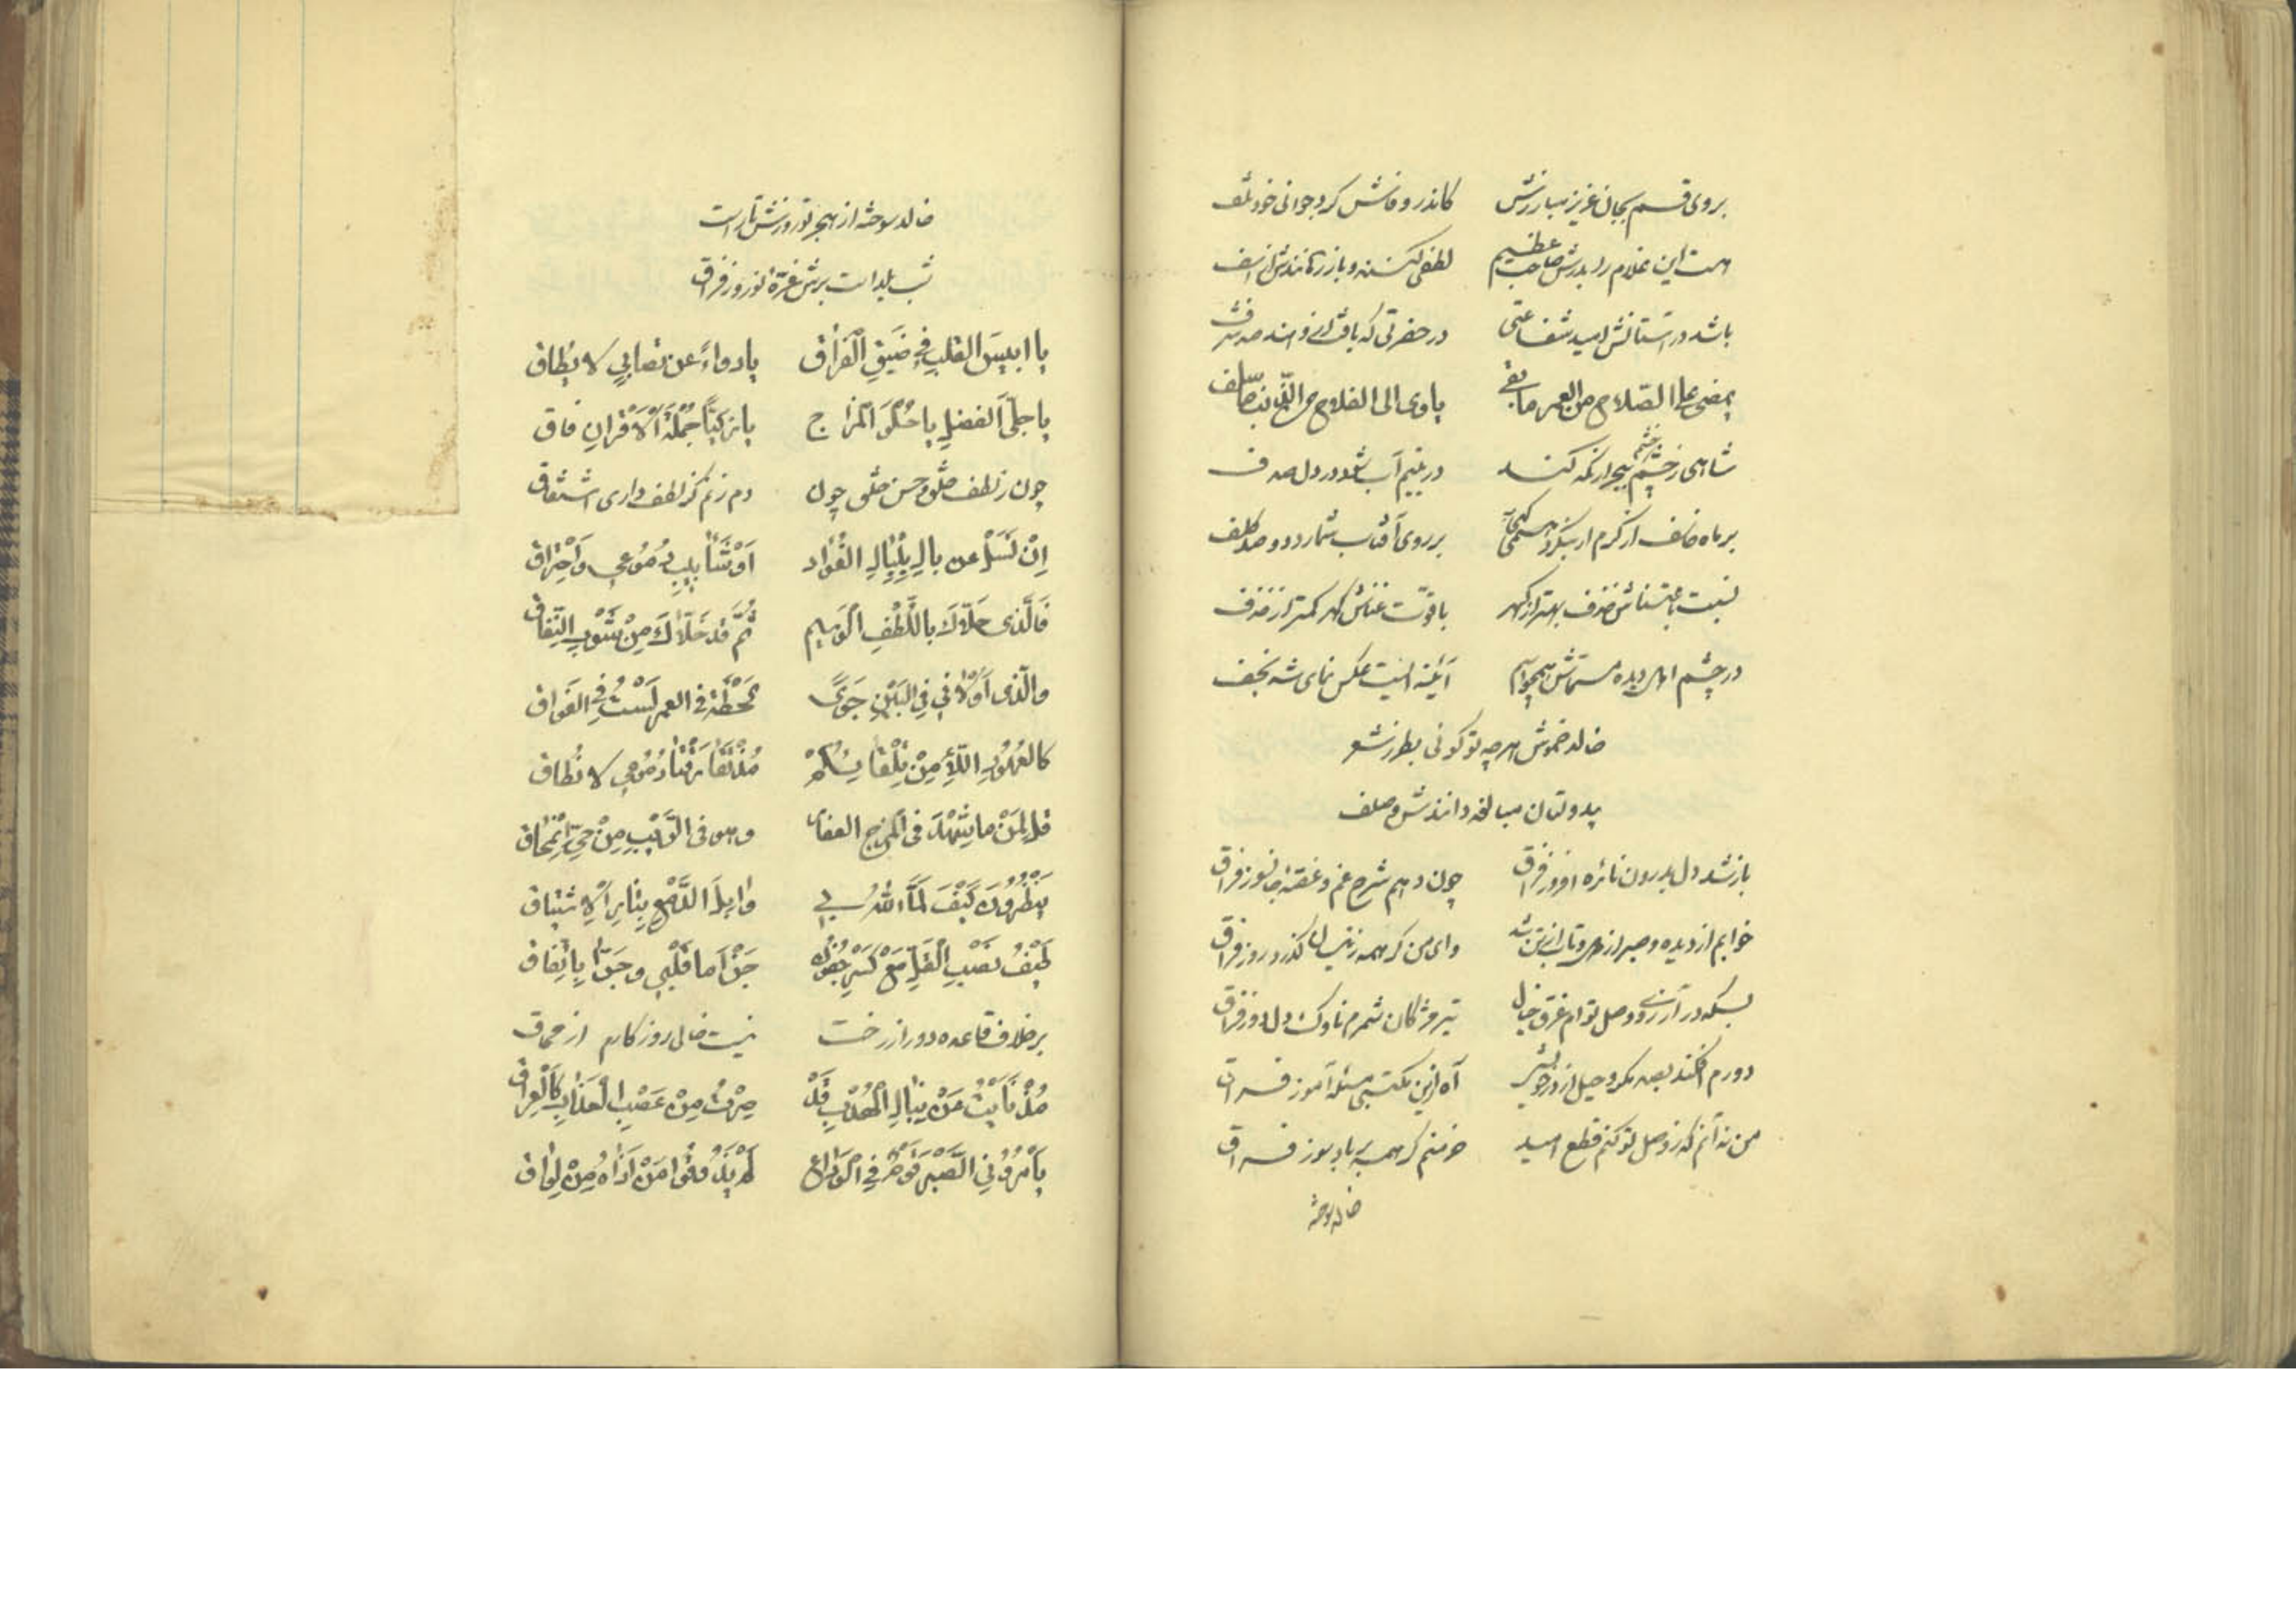 بروی قسم بجان عزیز مبارزش کاندر وفاش کرد جوانی خود تلف
هست این غلام را بدرش صاحب عظیم لطفی کنند و باز رهانندش از اسف
باشد در آستانش امید شفاعتی در حضرتی که یافت ازو
یمضی علی الصلاح من العمر ما بقی یاوی الی الفلاح من
شاهی ز خشم چشم بیم آب شود در دل صدف
بر ماه خاسف از کرم ار بنگرد همی بر روی آفتاب شمارد دو صد کلف
نسبت باعتنائش خزف بهتر از گهر با قوت غنائش گهر کمتر از خزف
در چشم اهل دیده آئینه ایست عکس نمای شه نجف
خالد خموش هرچه تو گوئی بطرز شعر
بدولتان مبالغه دانندش و صلف
باز شد دل بدرون نائره افروز فراق چون دهم شرح غم و غصهٔ جانسوز فراق
خوابم از دیده و صبر از دل و تاب از تن شد وای من گر همه زینسان گذرد روز فراق
بسکه در آرزوی وصل توام غرق خیال تیر مژگان شمرم ناوک دلدوز فراق
دورم افکند بصد مکر و حیل از در خویش آه ازین مکتبی مسئله آموز فراق
من نه آنم که ز وصل تو کنم قطع امید خرمنم گر همه بر باد بسوز فراق
خالد سوخته
خالد سوخته از هجر تو روزش تارست
شب یلداست برش غرهٔ نوروز فراق
یا انیس القلب فی ضیق الفراق یا دواء عن تصابی لا یطاق
یا جلی الفضل یا حلو المزاج یا زکیا جملة الاقران فاق
چون ز لطف خلق و حسن خلق چون دم زنم کز لطف داری اشتقاق
ان تسل عن بال بلبال الفؤاد او شآبیب دموعی واحتراق
فالذی حلاک باللطف الوسیم ثم قد خلاک من شوب النفاق
والذی اولانی فی البین جوی لحظة فی العمر لست فی الفواق
کالعهود اللاء من تلقائکم مذ دموعی لا تطاق
قل لمن ما یشهد فی المزج وهو فی التویب من حی
ینظرون کیف لما الله بی وابل الدمع بنار الاشتیاق
کیف نصب القلب مع کسر جفونه جزآ ما قلبی وجرا باتفاق
بر خلاف قاعده دور از رخت نیست خالی روزگارم از محاق
مذ نأیت عن نبال الهدب قد صرت من عصب العذاب کالعراق
یأمرونی الصبر قوم فی الوداع لم یذوقوا من اذاه من لواق